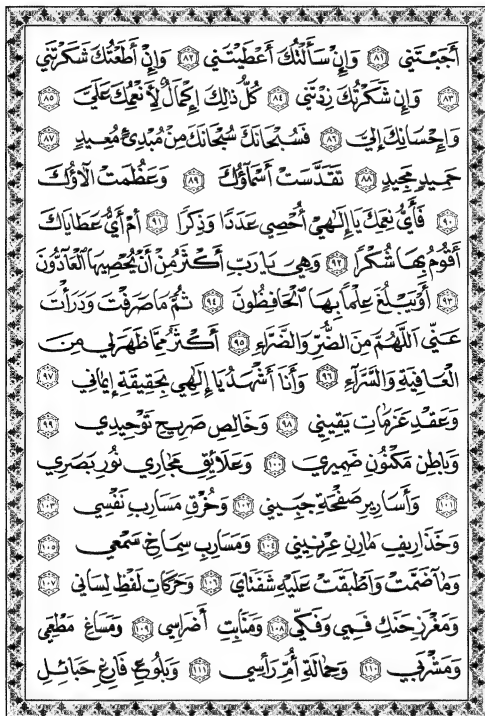 أَجَبْتَنِي ﴿٨١﴾ وَإِنْ سَأَلْتُكَ أَعْطَيْتَنِي ﴿٨٢﴾ وَإِنْ أَطَعْتُكَ شَكَرْتَنِي
﴿٨٣﴾ وَإِنْ شَكَرْتُكَ زِدْتَنِي ﴿٨٤﴾ كُلُّ ذٰلِكَ إِكْمَالٌ لِأَنْعُمِكَ عَلَيَّ ﴿٨٥﴾
وَإِحْسَانِكَ إِلَيَّ ﴿٨٦﴾ فَسُبْحَانَكَ سُبْحَانَكَ مِنْ مُبْدِئٍ مُعِيدٍ ﴿٨٧﴾
حَمِيدٍ مَجِيدٍ ﴿٨٨﴾ تَقَدَّسَتْ أَسْمَاؤُكَ ﴿٨٩﴾ وَعَظُمَتْ آلَاؤُكَ
﴿٩٠﴾ فَأَيُّ نِعَمِكَ يَا إِلٰهِي أُحْصِي عَدَدًا وَذِكْرًا ﴿٩١﴾ أَمْ أَيُّ عَطَايَاكَ
أَقُومُ بِهَا شُكْرًا ﴿٩٢﴾ وَهِيَ يَا رَبِّ أَكْثَرُ مِنْ أَنْ يُحْصِيَهَا الْعَآدُّونَ
﴿٩٣﴾ أَوْ يَبْلُغَ عِلْمًا بِهَا الْحَافِظُونَ ﴿٩٤﴾ ثُمَّ مَا صَرَفْتَ وَدَرَأْتَ
عَنِّي اللّٰهُمَّ مِنَ الضُّرِّ وَالضَّرَّاءِ ﴿٩٥﴾ أَكْثَرُ مِمَّا ظَهَرَ لِي مِنَ
الْعَافِيَةِ وَالسَّرَّاءِ ﴿٩٦﴾ وَأَنَا أَشْهَدُ يَا إِلٰهِي بِحَقِيقَةِ إِيمَانِي ﴿٩٧﴾
وَعَقْدِ عَزَمَاتِ يَقِينِي ﴿٩٨﴾ وَخَالِصِ صَرِيحِ تَوْحِيدِي ﴿٩٩﴾
وَبَاطِنِ مَكْنُونِ ضَمِيرِي ﴿١٠٠﴾ وَعَلَائِقِ مَجَارِي نُورِ بَصَرِي
﴿١٠١﴾ وَأَسَارِيرِ صَفْحَةِ جَبِينِي ﴿١٠٢﴾ وَخُرْقِ مَسَارِبِ نَفْسِي ﴿١٠٣﴾
وَخَذَارِيفِ مَارِنِ عِرْنِينِي ﴿١٠٤﴾ وَمَسَارِبِ سِمَاخِ سَمْعِي ﴿١٠٥﴾
وَمَا ضُمَّتْ وَأَطْبَقَتْ عَلَيْهِ شَفَتَايَ ﴿١٠٦﴾ وَحَرَكَاتِ لَفْظِ لِسَانِي ﴿١٠٧﴾
وَمَغْرَزِ حَنَكِ فَمِي وَفَكِّي ﴿١٠٨﴾ وَمَنَابِتِ أَضْرَاسِي ﴿١٠٩﴾ وَمَسَاغِ مَطْعَمِي
وَمَشْرَبِي ﴿١١٠﴾ وَحِمَالَةِ أُمِّ رَأْسِي ﴿١١١﴾ وَبَلُوعِ فَارِغِ حَبَائِلِ